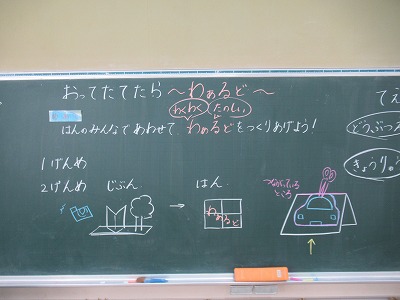 おってたてたら～わぁるど～
わくわく たのしい
はんのみんなであわせて わぁるどをつくりあげよう！
1げんめ
2げんめ じぶん → はん
わぁるど
つながっている
ところ
てえ
どうぶつえ
きょうりゅう